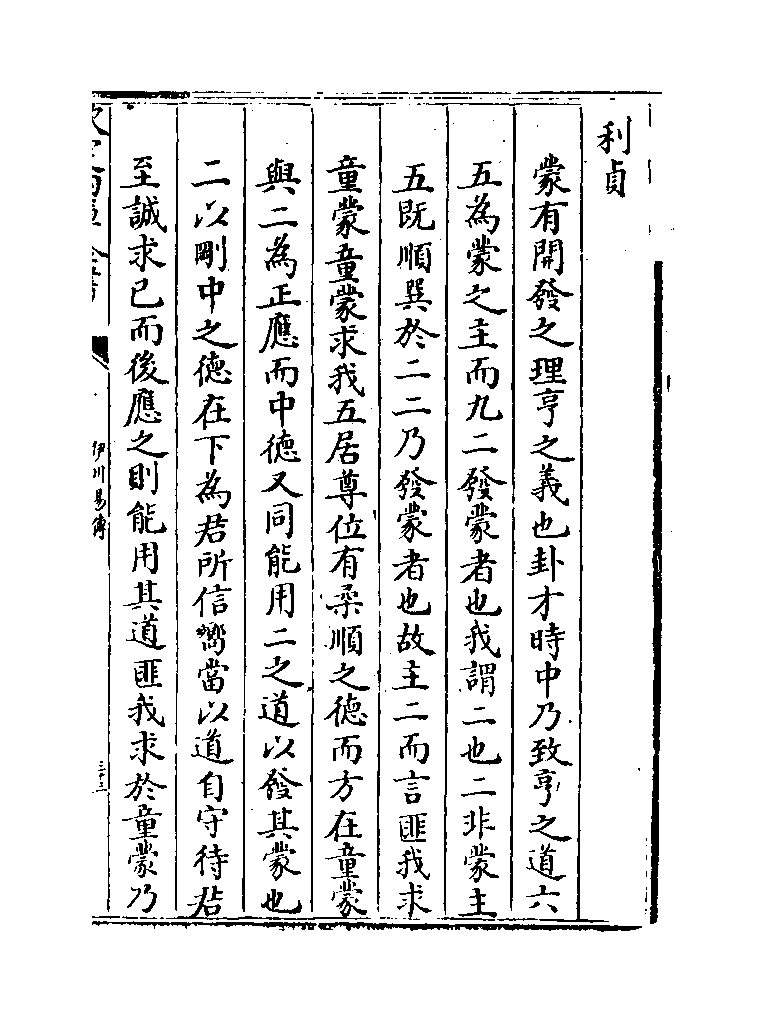 利貞
蒙有開發之理亨之義也卦才時中乃致亨之道六
五為蒙之主而九二發蒙者也我謂二也二非蒙主
五既順巽於二二乃發蒙者也故主二而言匪我求
童蒙童蒙求我五居尊位有柔順之德而方在童蒙
與二為正應而中德又同能用二之道以發其蒙也
二以剛中之德在下為君所信嚮當以道自守待君
至誠求已而後應之則能用其道匪我求於童蒙乃
伊川易傳